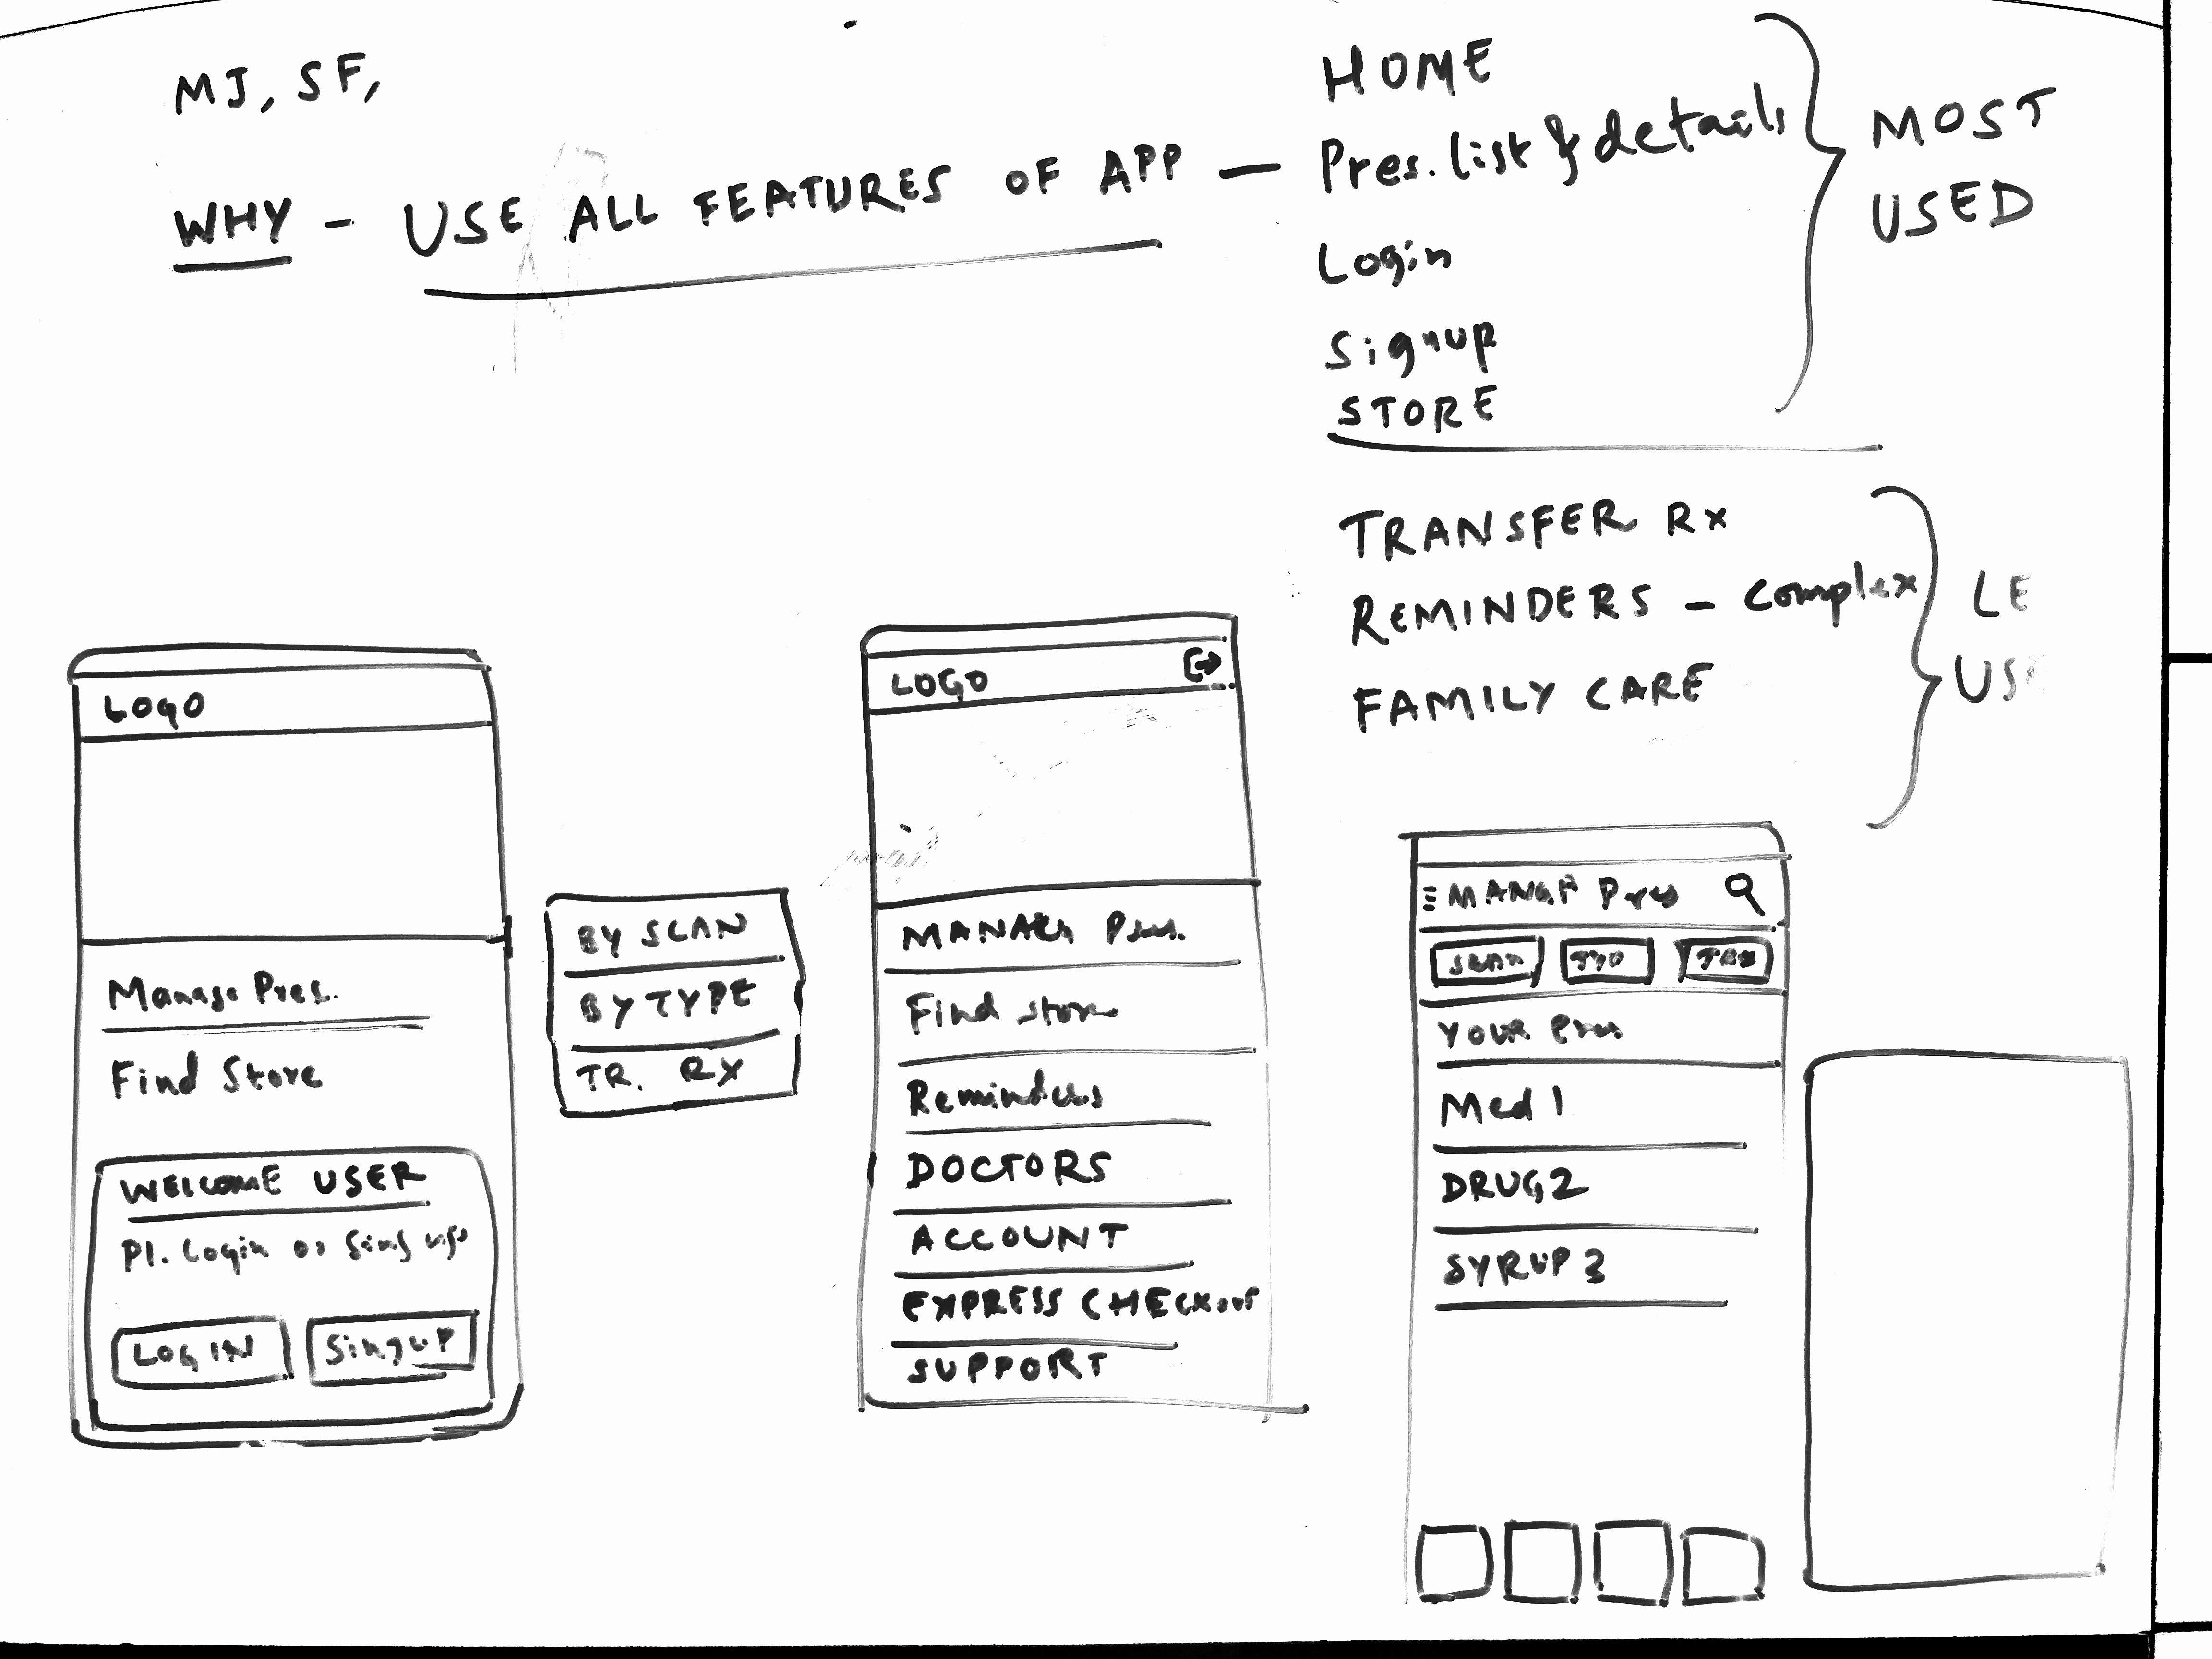 MJ, SF,
WHY - USE ALL FEATURES OF APP -
HOME
Pres. list & details
Login
Signup
STORE
MOST
USED
TRANSFER RX
REMINDERS - Complex
FAMILY CARE
LE
US
LOGO
Manage Pres.
Find Store
WELCOME USER
Pl. Login or
LOGIN
SingUP
BY SCAN
BY TYPE
TR. RX
LOGO
Pres.
Find store
Reminders
DOCTORS
ACCOUNT
EXPRESS CHECKOUT
SUPPORT
Pres
SCAN
YOUR Pres
Med 1
DRUG2
SYRUP3